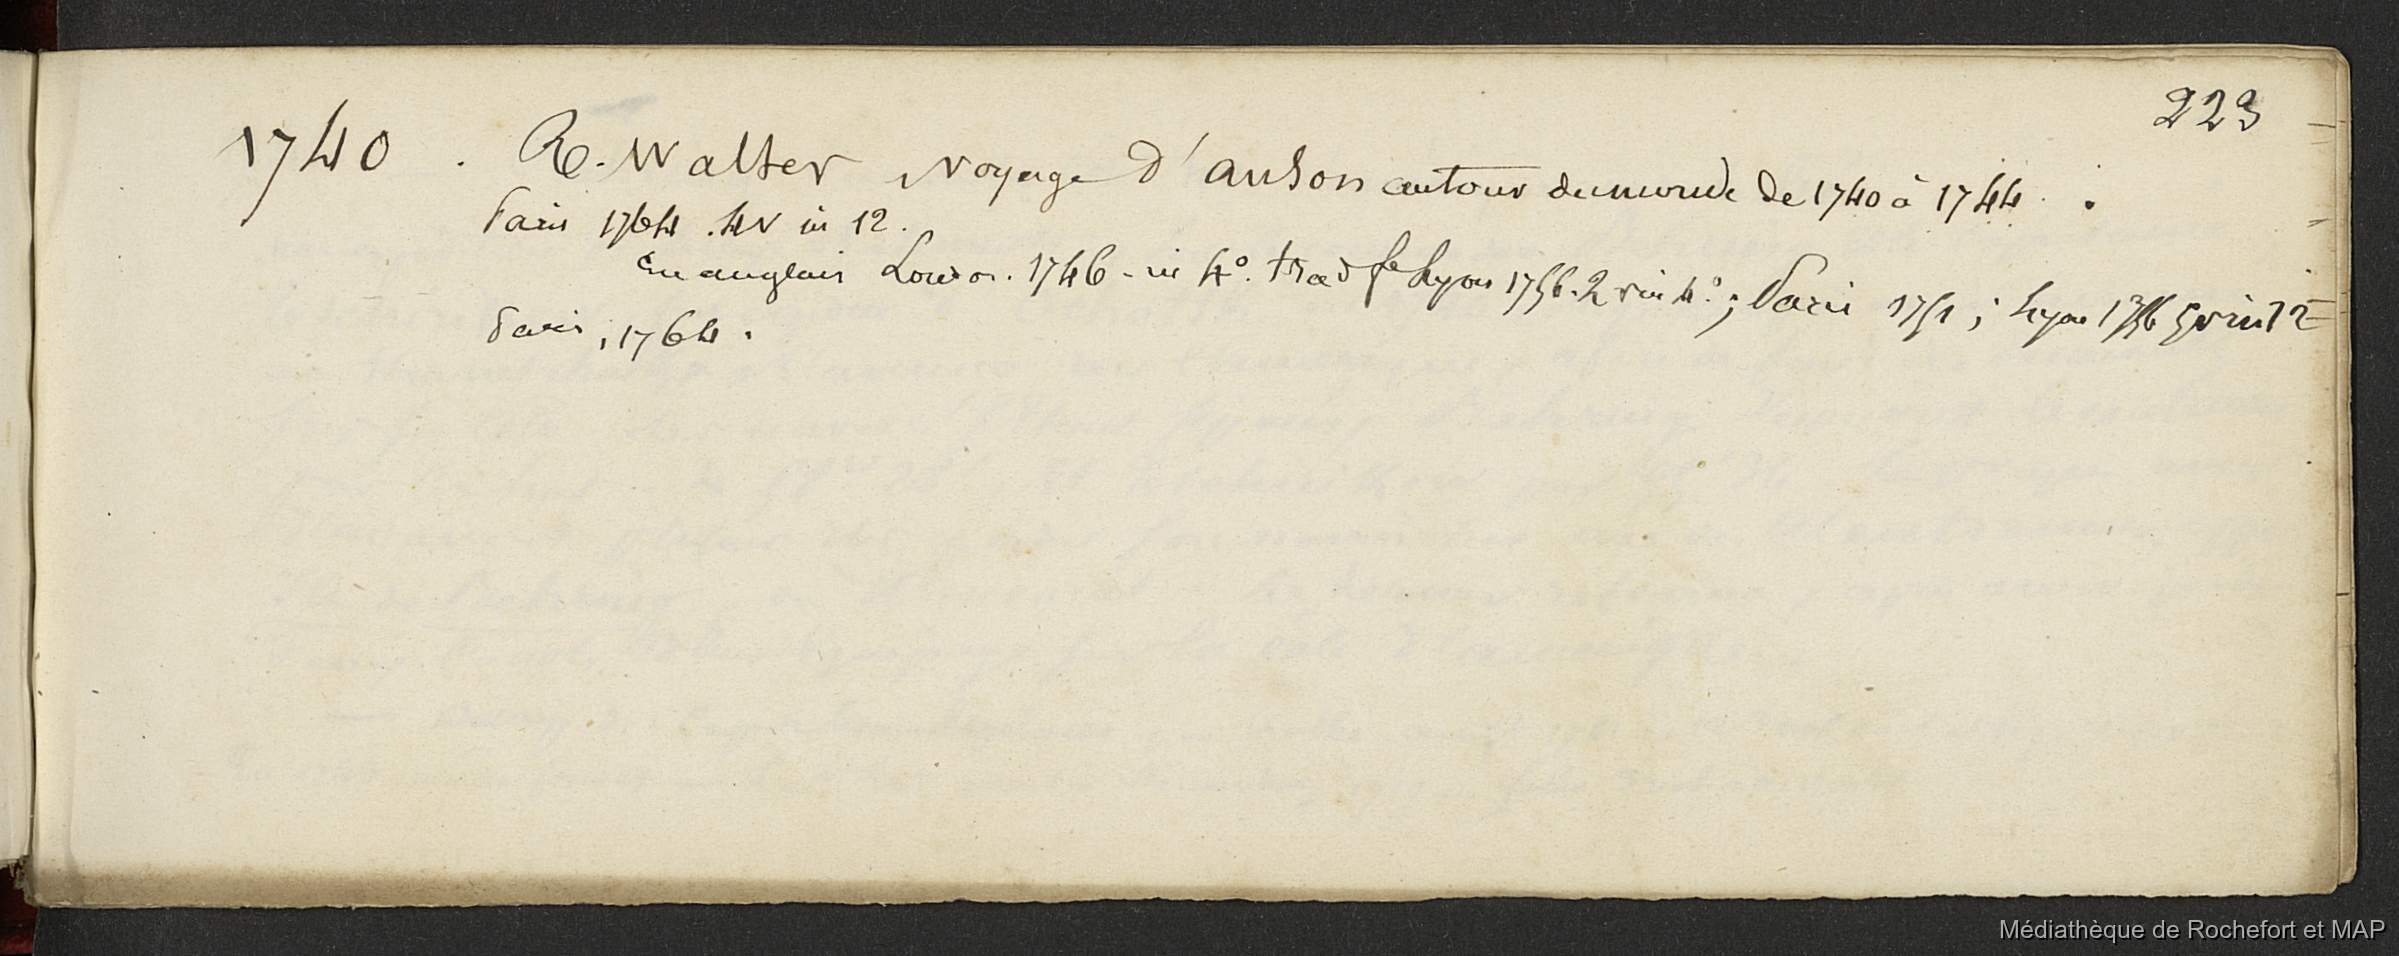 223
1740 . R. Walter voyage d'anson autour du monde de 1740 à 1744 .
Paris 1764 . 4 v in 12 .
En anglais London . 1746 - in 4° . trad fe Lyon 1756 . 2 v in 4° ; Paris 1751 ; Lyon 1756 5 v in 12
Paris , 1764 .
Médiathèque de Rochefort et MAP